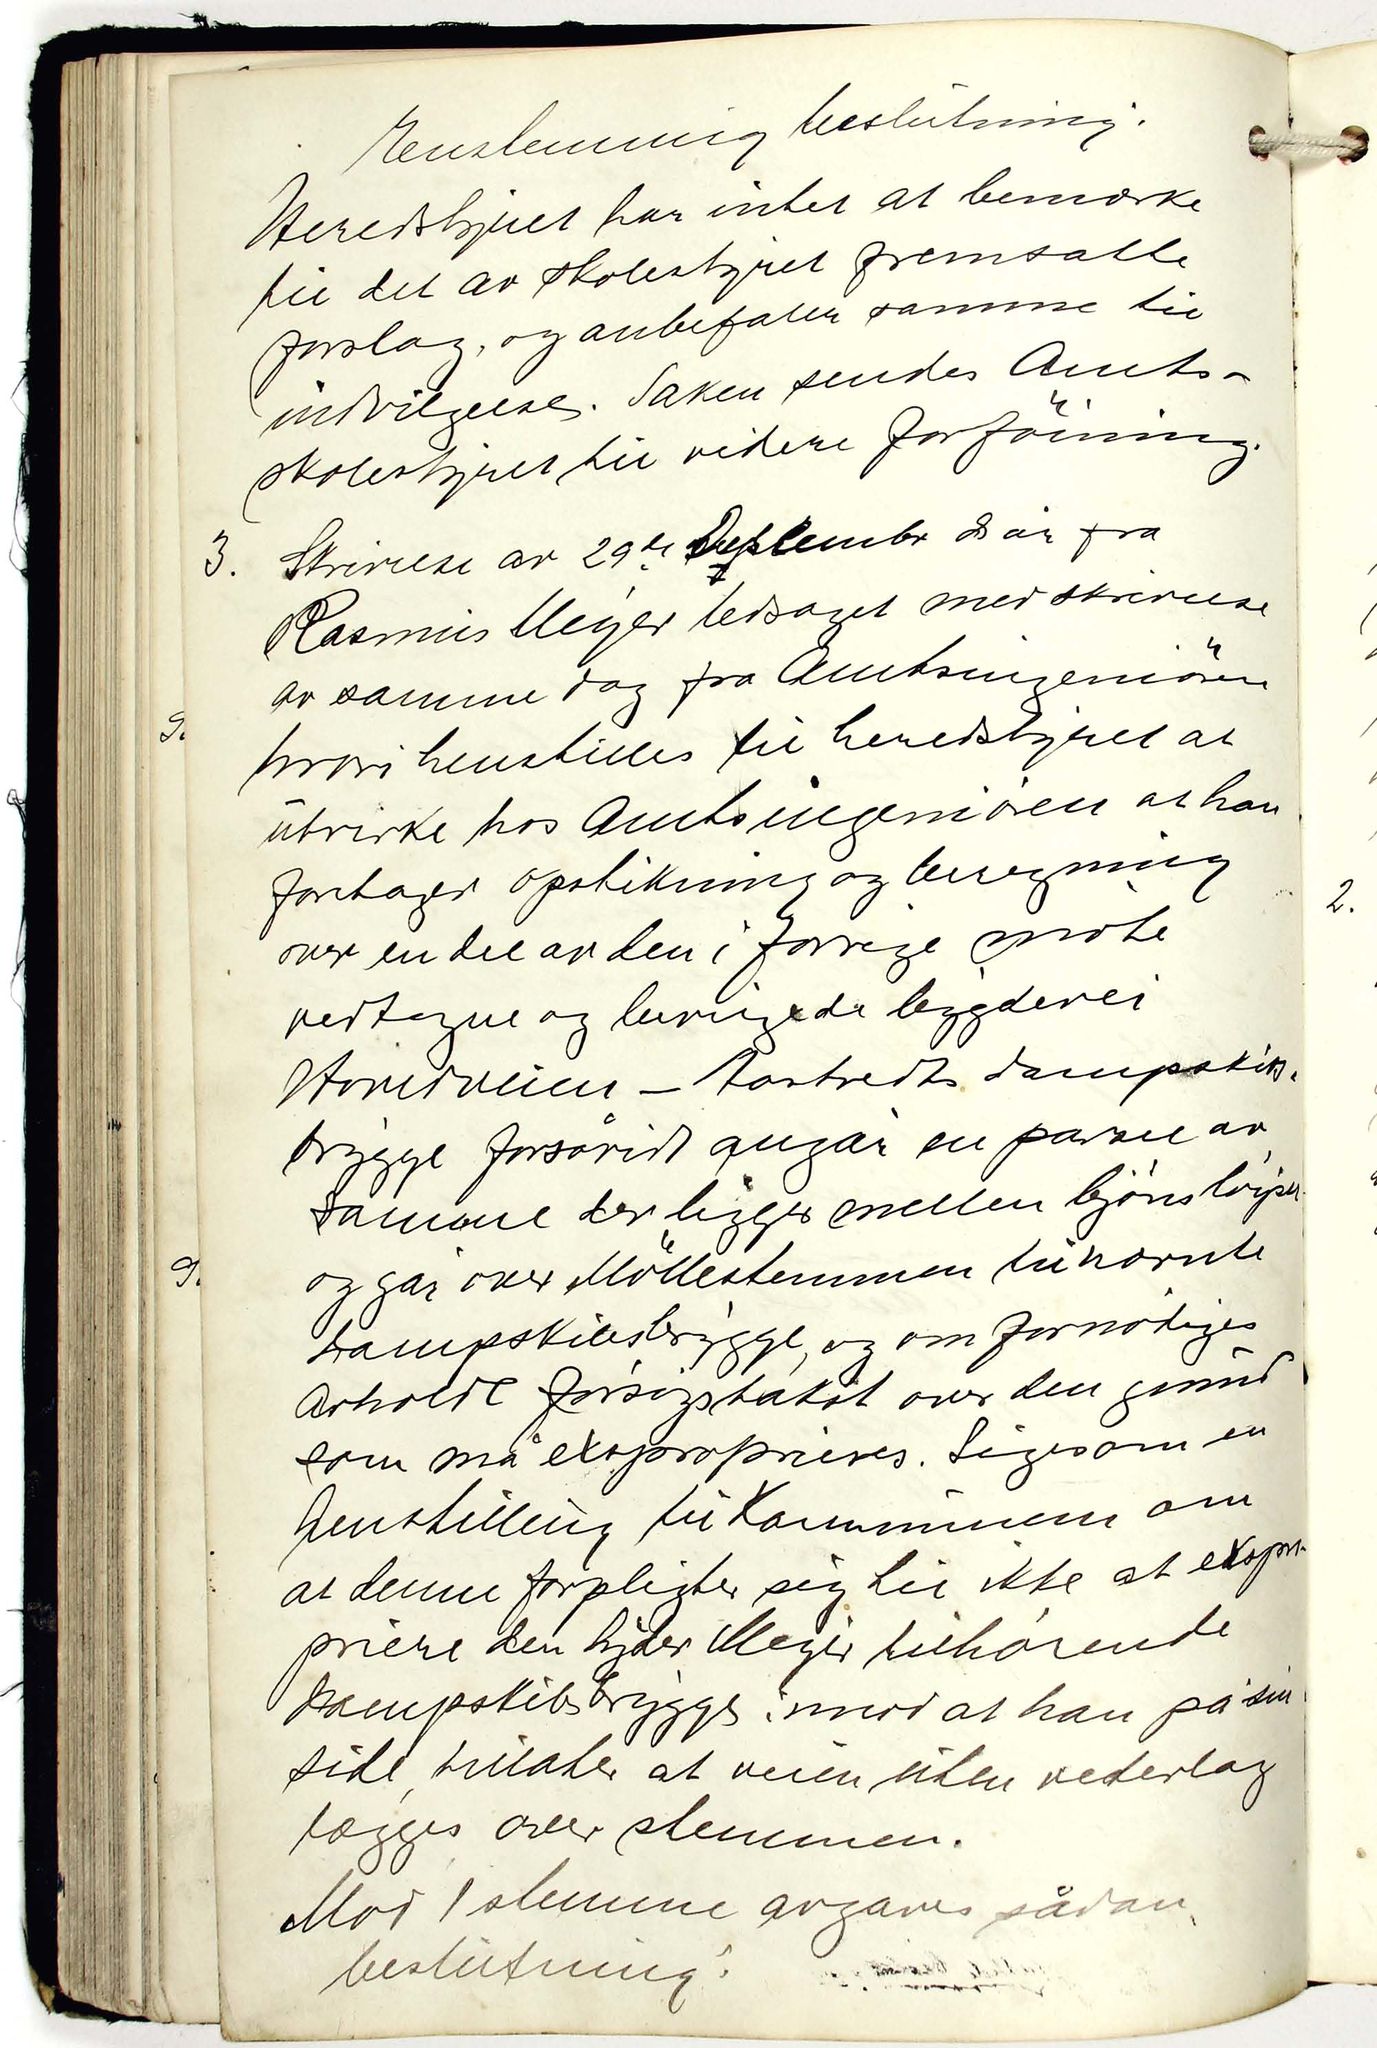 Enstemmig beslutning.
Heredstyret har intet at bemærke
til det av skolestyret fremsatte
forslag, og anbefaler samme til
indvilgelse. Saken sendes Amts-
skolestyret til videre forföining.
3. Skrivelse av 29de September d år fra
Rasmus Meyer ledsaget med skrivelse
av samme dag fra Amtsingeniören
hvori henstilles til heredstyret at
utvirke hos Amtsingeniören at han
foretager opstikning og beregning
over en del av den i forrige møte
vedtagne og bevilgede bygdevei
Hovedveien - Aastvedts dampskibs-
brygge forsåvidt angår en parsel av
samme der ligger mellem
og går over Möllestemmen til nævnte
dampskibsbrygge, og om fornødiges
avholdt forsøgstakst over den grund
som må exsproprieres. Ligesom en
henstilling til Kommunen om
at denne forpligter sig til ikke at exspro-
priere den hr Meyer tilhörende
dampskibsbrygge imod at han på sin
side tillater at veien uten vederlag
lægges over stemmen.
Mod 1 stemme avgaves sådan
beslutning:
9.
9.
2.